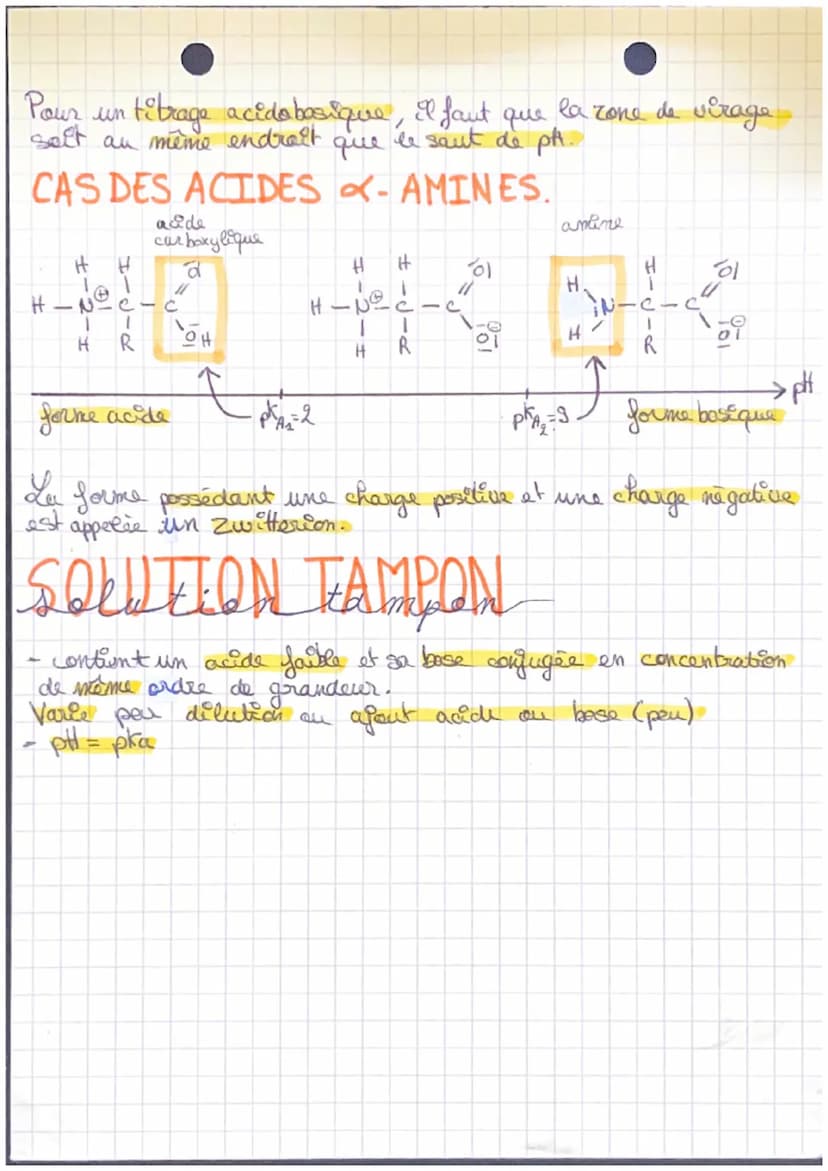 Pour un titrage acidobasique, il faut que la zone de virage
soit au même endroit que le saut de pH.
CAS DES ACIDES α-AMINES.
acide
carboxylique
amine
H H O
H – N⊕ – C – C
H R OH
H H O
H – N⊕ – C – C
H R O⊖
H H O
N – C – C
H R O⊖
pH
forme acide
pKA1=2
pKA2=9
forme basique
La forme possédant une charge positive et une charge négative
est appelée un Zwitterion.
SOLUTION TAMPON
solution tampon
- contient un acide faible et sa base conjugée en concentration
de même ordre de grandeur.
Varie peu dilution ou ajout acide ou base (peu)
- pH = pka